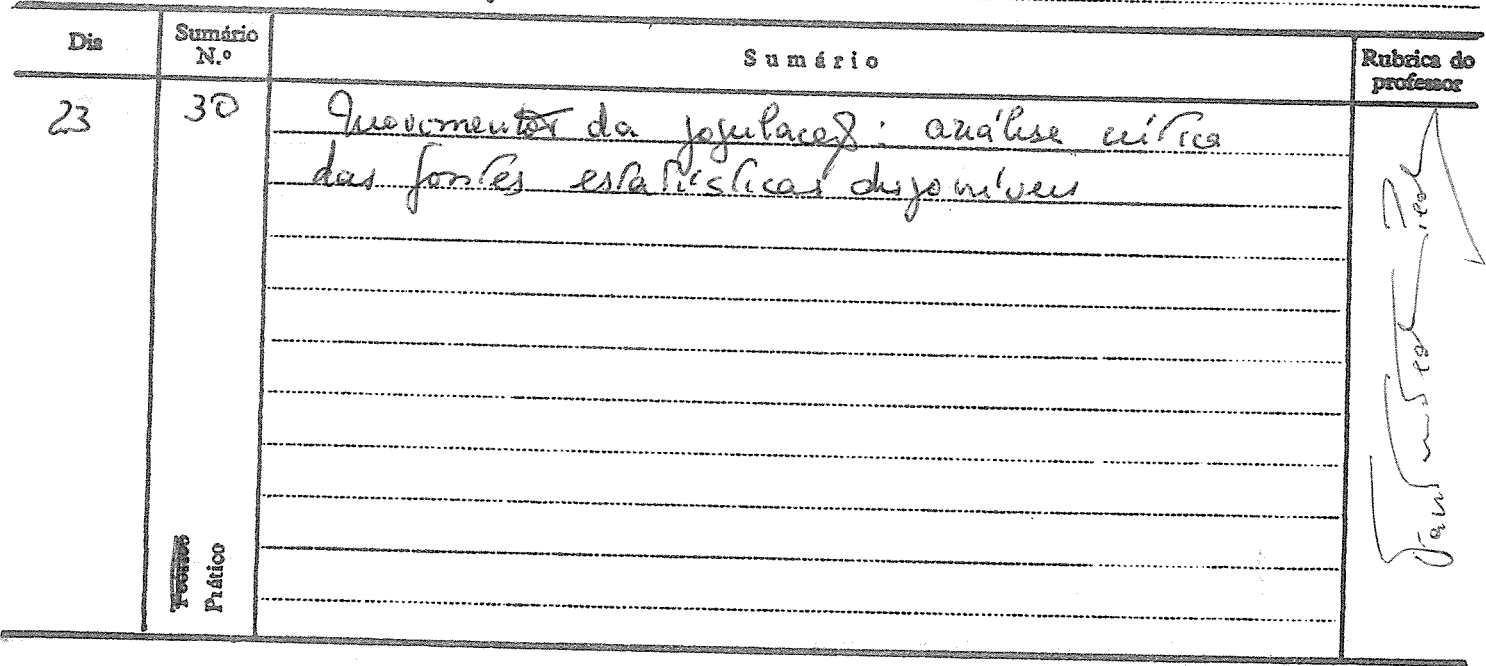 Dia
Sumário N.º
Sumário
Rubrica do professor
23
30
Movimentos da população: análise crítica
das fontes estatísticas disponíveis
Teórico
Prático